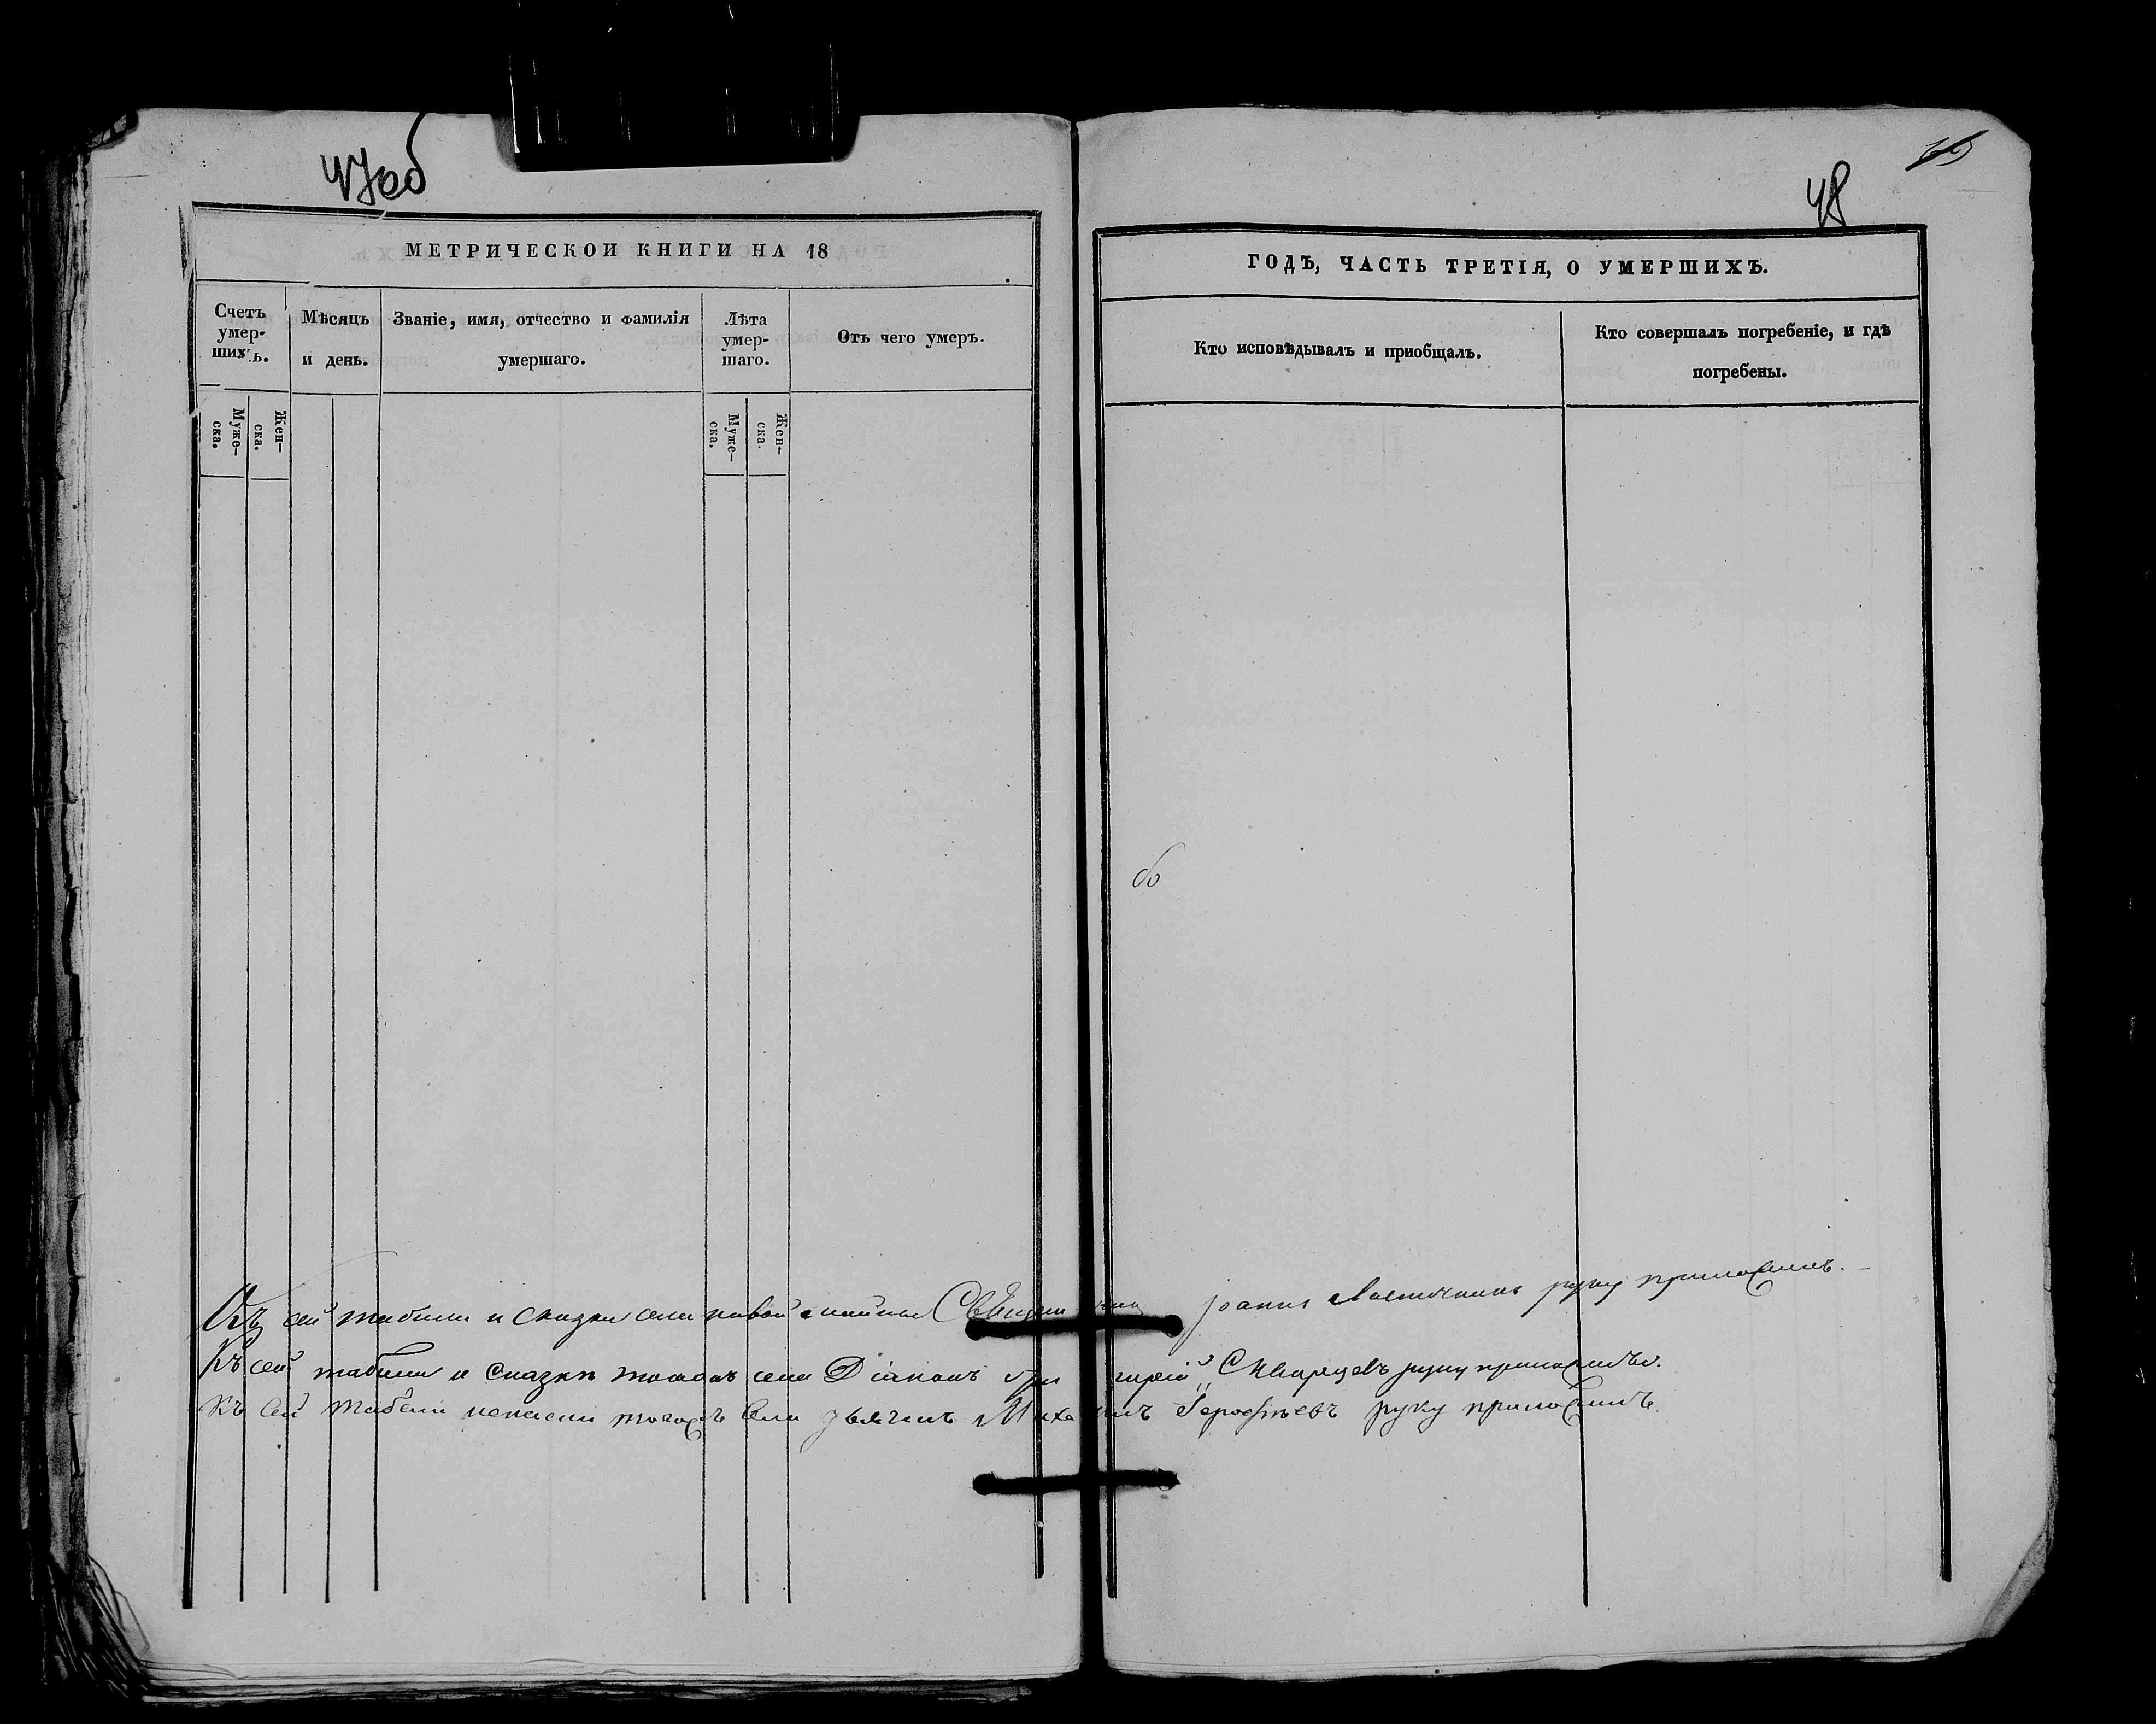 47об
МЕТРИЧЕСКОИ КНИГИ НА 18
Счетъ умер-шихъ.
Мѣсяцъ и день.
Званіе, имя, отчество и фамилія умершаго.
Лѣта умер-шаго.
Отъ чего умеръ.
Муже-ска.
Жен-ска.
Муже-ска.
Жен-ска.
48
ГОДѢ, ЧАСТЬ ТРЕТІЯ, О УМЕРШИХЪ.
Кто исповѣдывалъ и приобщалъ.
Кто совершалъ погребеніе, и гдѣ погребены.
Къ сей табели и сказки села новой Свѣщен Іоаннъ руку приложилъ.
Къ сей табели и сказки тогожъ села Діаконъ Гри горій Скворцовъ руку приложилъ.
Къ сей табели тогожъ села дьячекъ Миха илъ Іерофѣевъ руку приложилъ.